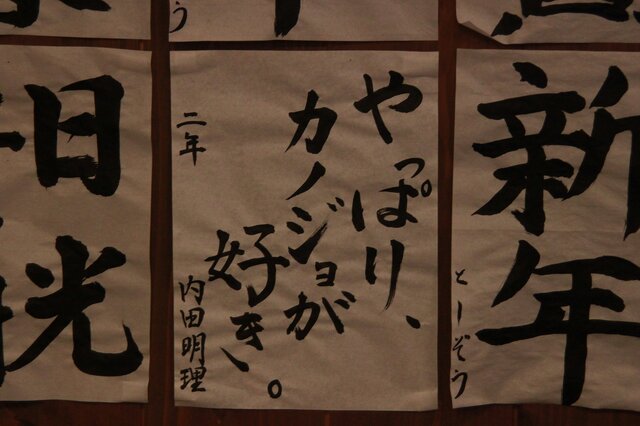 新年
とーぞう
やっぱり、
カノジョが
好き。
二年
内田明理
日光
う